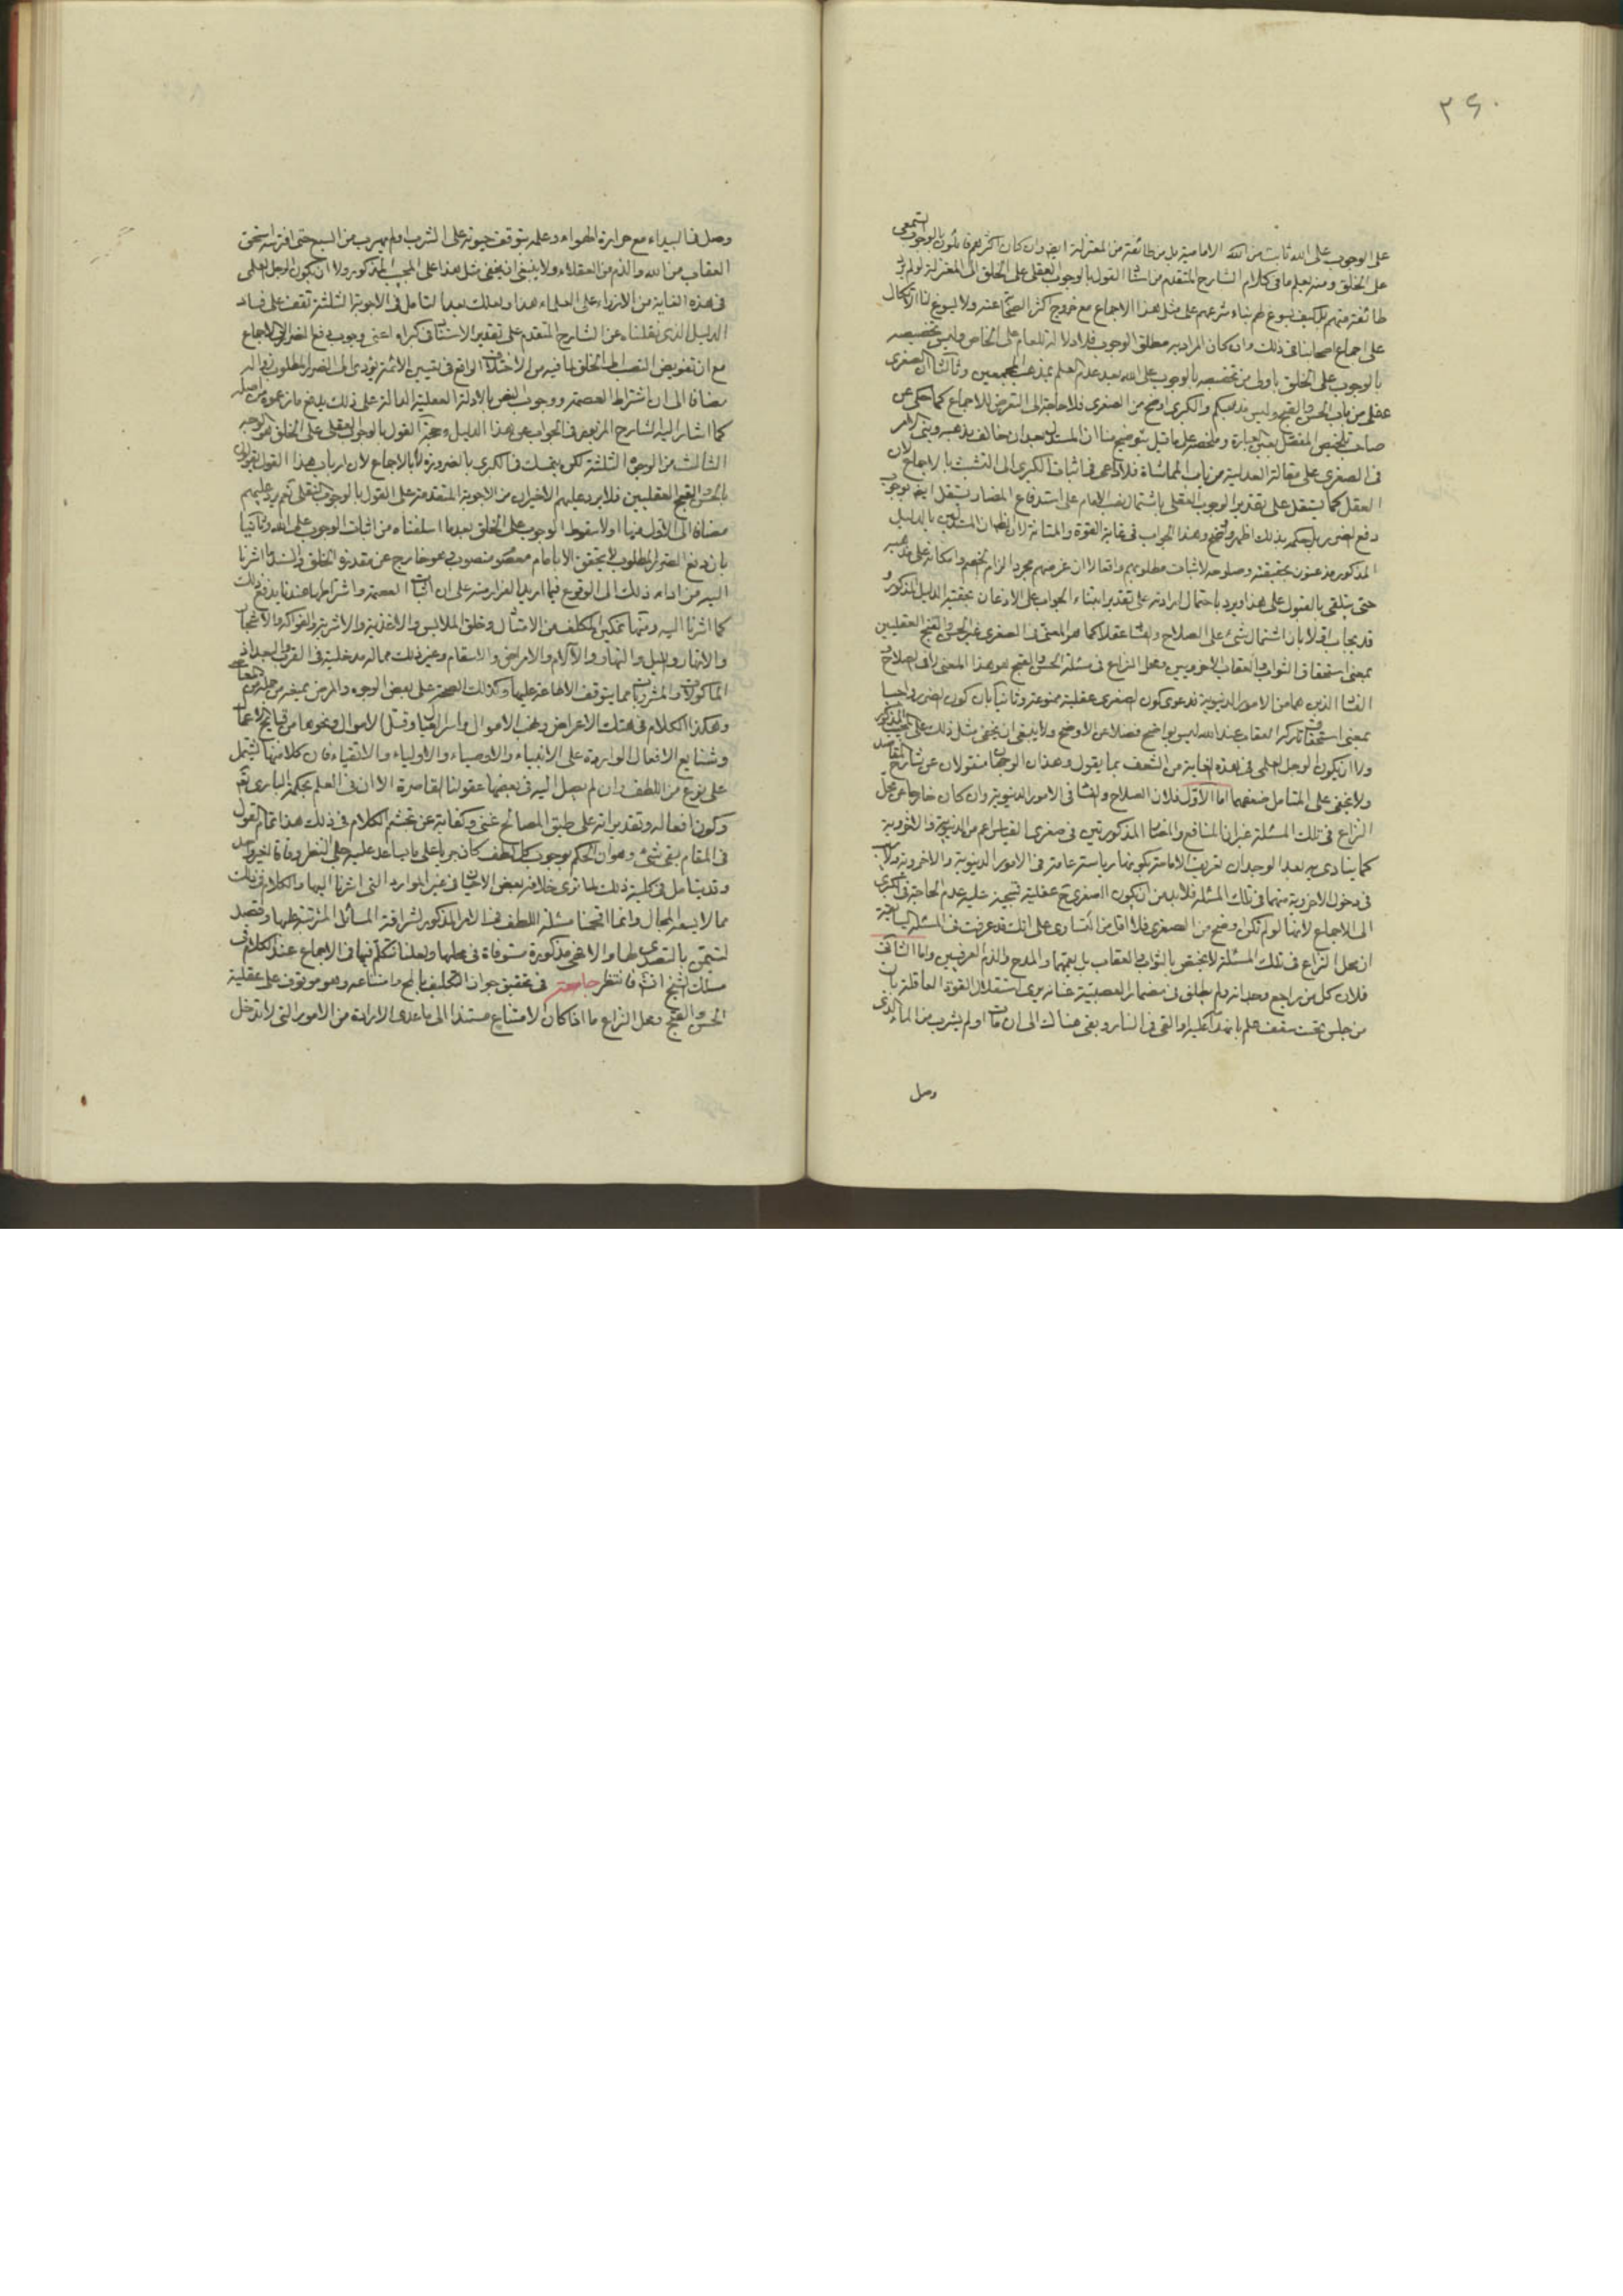 ۲۶۰
على الوجوب على الله ثابت من الامامية بل من طائفة من المعتزلة ايضا وان كان اكثرهم قائلون بالوجوب السمعى
على الخلق ومنه يعلم ما فى كلام الشارح المتقدم من القول بالوجوب العقلى على الخلق الى المعتزلة
طائفة منهم فكيف يسوغ لهم بناء شرعهم على مثل هذا الاجماع مع خروج اكثر الصحابة عنه ولا يسوغ لنا الاتكال
على اجماع اصحابنا فى ذلك وان كان المراد به مطلق الوجوب فلا دلالة للعام على الخاص وليس تخصيصه
بالوجوب على الخلق باولى من تخصيصه بالوجوب على الله بعد عدم العلم بمذهب المجمعين وثالثا ان الصغرى
عقلى من باب الحسن والقبح وليس مذهبكم والكبرى اوضح من الصغرى فلا حاجة الى التعرض للاجماع كما حكى عن
صاحب تلخيص المحصل بعين العبارة وملخصه على ما قيل بتوضيح منا ان المستدل بعد ان خالف مذهبه وبنى الامر
فى الصغرى على مقالة العدلية من باب المماشاة فلا داعى فى اثبات الكبرى الى التشبث بالاجماع لان
العقل كما يستقل على تقدير الوجوب العقلى باشتمال نصب الامام على استدفاع المضار يستقل ايضا بوجوب
دفع الضرر بل حكمه بذلك اظهر واوضح وهذا الجواب فى غاية القوة والمتانة لان المستدلين بالدليل
المذكور مذعنون بحقيقته وصلوحه لاثبات مطلوبهم واقعا لا ان غرضهم مجرد الزام الخصم واسكاته على مذهبه
حتى يتلقى بالقبول على هذا ويرد باحتمال ايراده على تقدير ابتناء الجواب على الاذعان بحقية الدليل المذكور و
قد يجاب اولا بان اشتمال شئ على الصلاح والفساد عقلا كما هو المعنى فى الصغرى غير الحسن والقبح العقليين
بمعنى استحقاق الثواب والعقاب الاخرويين ومحل النزاع فى مسئلة الحسن والقبح هو هذا المعنى لا الصلاح و
الفساد الذين هما من الامور الدنيوية فدعوى كون الصغرى عقلية ممنوعة وثانيا بان كون الضرر واجبا
بمعنى استحقاق تاركه العقاب عند الله ليس بواضح فضلا عن الاوضح ولا ينبغى ان يخفى مثل ذلك على المجيب المذكور
ولا ان يكون الرجل العلمى فى هذه الغاية من الشعف بما يقول وهذان الوجهان منقولان عن شارح المقاصد
ولا يخفى على المتامل ضعفهما اما الاول فلان الصلاح والفساد فى الامور الدنيوية وان كان خارجا عن محل
النزاع فى تلك المسئلة غير ان المنافع والمضار المذكورتين فى صغرى القياس اعم من الدنيوية والاخروية
كما ينادى به بعد الوجدان تعريف الامامة بكونها رياسة عامة فى الامور الدينية والاخروية ولا
فى دخول الاخروية منهما فى تلك المسئلة فلابد من ان يكون الصغرى ح عقلية فيتجه عليه عدم الحاجة فى الكبرى
الى الاجماع لانها لو لم تكن اوضح من الصغرى فلا اقل من التساوى على انك قد عرفت فى المسئلة السابقة
ان محل النزاع فى تلك المسئلة لا يختص بالثواب والعقاب بل يعمهما والمدح والذم العرفيين واما الثانى
فلان كل من راجع وجدانه ولم يطلق فى مضمار العصبية عنانه يرى استقلال القوة العاقلة بان
من جلس تحت سقف علم بانهدامه عليه او القى فى النار وبقى هناك الى ان مات او لم يشرب من الماء الذى
وصل
وصل فى البيداء مع حرارة الهواء وعلمه بتوقف حيوته على الشرب او لم يهرب من السبع حتى افترسه استحق
العقاب من الله والذم من العقلاء ولا ينبغى ان يخفى مثل هذا على المجيب المذكور ولا ان يكون الرجل العلمى
فى هذه الغاية من الازراء على العلماء هذا ولعلك بعد التامل فى الاجوبة الثلثة تقف على فساد
الدليل الذى نقلناه عن الشارح المتقدم على تقدير الاستناد فى كبراه اعنى وجوب دفع الضرر الى الاجماع
مع ان تفويض النصب الى الخلق لما فيه من الاختلاف الواقع فى تعيين الائمة يؤدى الى الضرر المطلوب زواله
مضافا الى ان اشتراط العصمة ووجوب النص بالادلة العقلية الدالة على ذلك يدفع ما زعموه من اصله
كما اشار اليه الشارح المزبور فى الجواب عن هذا الدليل وحجة القول بالوجوب العقلى على الخلق هو الوجه
الثالث من الوجوه الثلثة لكن بتمسك فى الكبرى بالضرورة لا بالاجماع لان ارباب هذا القول يقولون
بالحسن والقبح العقليين فلا يرد عليهم الاخيران من الاجوبة المتقدمة على القول بالوجوب النقلى نعم يرد عليهم
مضافا الى الاول منها اولا سقوط الوجوب على الخلق بعد ما اسلفناه من اثبات الوجوب على الله وثانيا
بان دفع الضرر المطلوب لا يتحقق الا بامام معصوم منصوب وهو خارج عن مقدرة الخلق والسند ما اشرنا
اليه من اداء ذلك الى الوقوع فيما اريد الفرار منه على ان اثبات العصمة واشتراطها عندنا يدفع ذلك
كما اشرنا اليه ومنها تمكين المكلف من الامتثال وخلق الملابس والاغذية والاشربة والفواكه والاشجار
والانهار والليل والنهار والآلام والامراض والاسقام وغير ذلك مما له مدخلية فى القرب والبعد اذ
الماكولات والمشروبات مما يتوقف الاطاعة عليها وكذلك الصحة على بعض الوجوه والمرض
وهكذا الكلام فى هتك الاعراض ونهب الاموال واسر وقتل الاموال ونحوها من قبايح الاعمال
وشنايع الافعال الواردة على الانبياء والاوصياء والاولياء والاتقياء فان كلا منها يشتمل
على نوع من اللطف وان لم يصل اليه فى بعضها عقولنا القاصرة الا ان فى العلم بحكمة البارى تع
وكون افعاله وتقديراته على طبق المصالح غنى وكفاية عن تجشم الكلام فى ذلك هذا تمام القول
فى المقام بقى شئ وهو ان الحكم بوجوب كل لطف كان جريا على ما يساعد عليه جلى النظر وفاقا لغير واحد
وقد يتامل فى كلية ذلك لما ترى خلافه لبعض الاعيان فى غير الموارد التى اشرنا اليها والكلام فى ذلك
مما لا يسعه المجال وانما اقحمنا مسئلة اللطف فى الامر المذكور لشرافة المسائل المترتبة عليها وقصد
التيمن بالتصدى لها والا فهى مذكورة مستوفاة فى محلها ولعلنا نتكلم فيها فى الاجماع عند الكلام فى
مسلك الشيخ انش فانتظر خاتمة فى تحقيق جواز التكليف بالمح وامتناعه وهو موقوف على عقلية
الحسن والقبح ومحل النزاع ما اذا كان الامتناع مستندا الى ما عدى الارادة من الامور التى لا تدخل